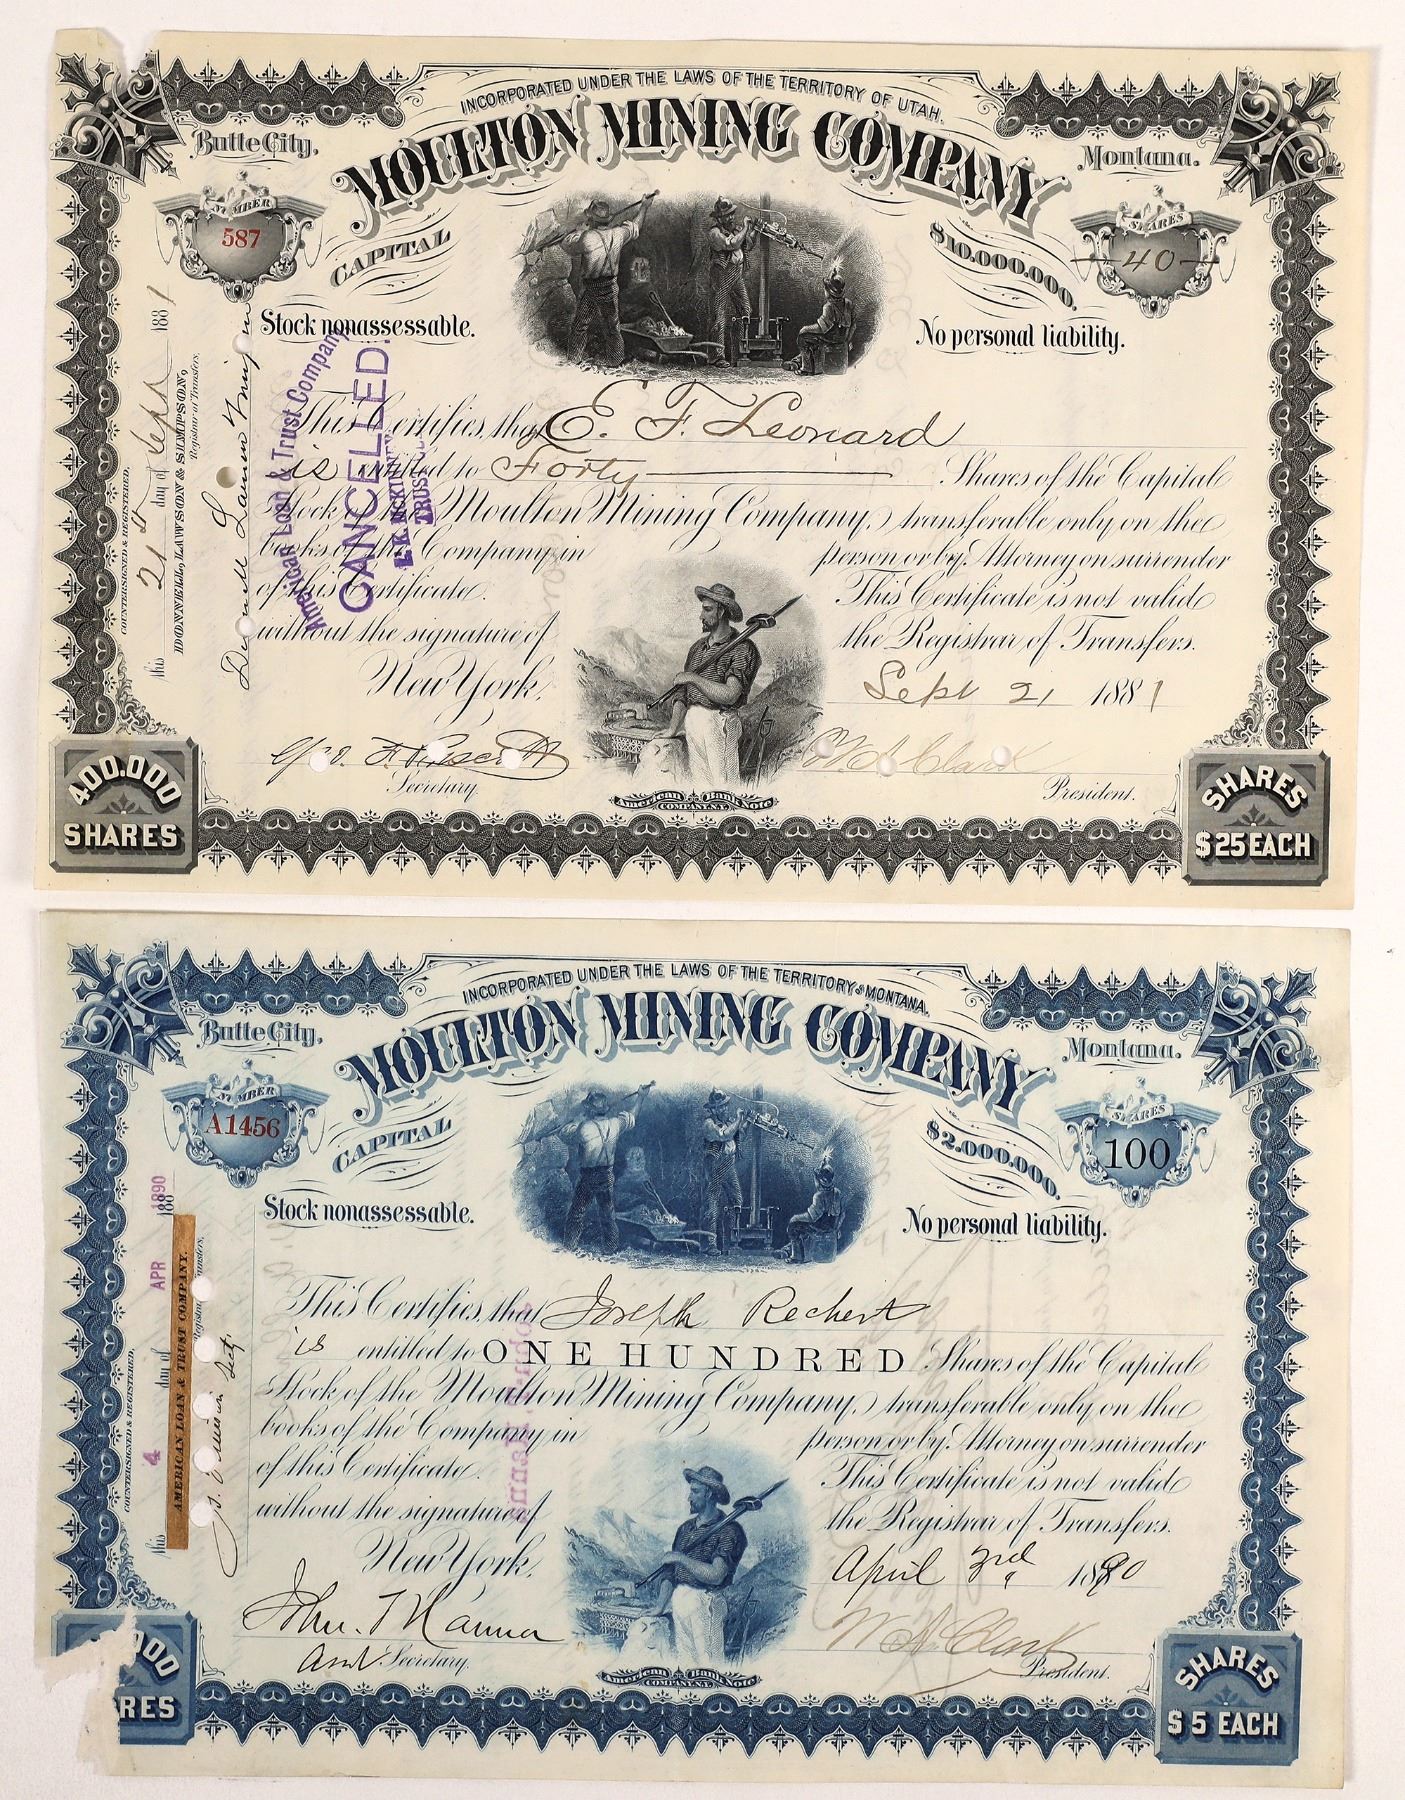 INCORPORATED UNDER THE LAWS OF THE TERRITORY OF UTAH.
Butte City,
MOULTON MINING COMPANY
Montana.
NUMBER
587
CAPITAL
$10.000.000.
SHARES
40
Stock nonassessable.
No personal liability.
This Certifies, that E. F. Leonard
is entitled to Forty Shares of the Capital
Stock of the Moulton Mining Company, transferable only on the
books of the Company in person or by Attorney on surrender
of this Certificate. This Certificate is not valid
without the signature of the Registrar of Transfers.
New York, Sept 21 1881
Secretary.
W. A. Clark
President.
American Bank Note
COMPANY, N.Y.
400.000
SHARES
SHARES
$25 EACH
COUNTERSIGNED & REGISTERED.
This 21st day of Sept 1881
DONNELL, LAWSON & SIMPSON,
Registrar of Transfers.
American Loan & Trust Company
CANCELLED.
INCORPORATED UNDER THE LAWS OF THE TERRITORY OF MONTANA.
Butte City,
MOULTON MINING COMPANY
Montana.
NUMBER
A1456
CAPITAL
$2.000.000.
SHARES
100
Stock nonassessable.
No personal liability.
This Certifies, that Joseph Rechert
is entitled to ONE HUNDRED Shares of the Capital
Stock of the Moulton Mining Company, transferable only on the
books of the Company in person or by Attorney on surrender
of this Certificate. This Certificate is not valid
without the signature of the Registrar of Transfers.
New York, April 3rd 1890
Asst Secretary.
W A Clark
President.
American Bank Note
COMPANY, N.Y.
SHARES
$5 EACH
COUNTERSIGNED & REGISTERED.
This 4 day of APR 1890
188
AMERICAN LOAN & TRUST COMPANY.